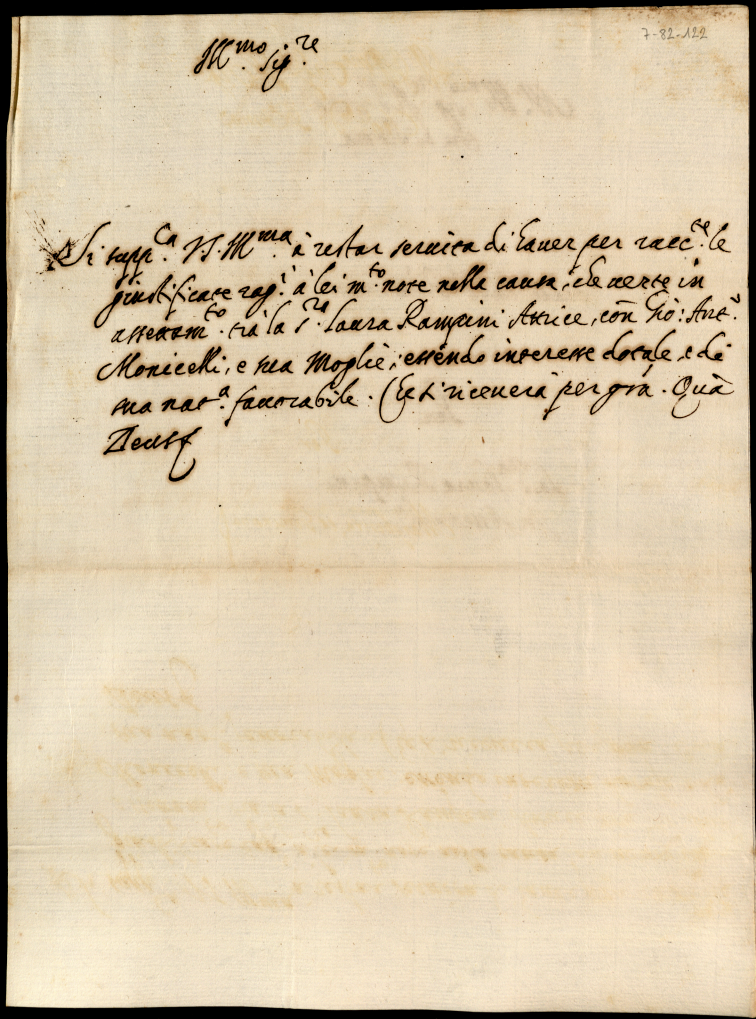 7-82-122
Ill.mo Sig.re
Si supp.ca V.S. Ill.ma à restar seruita di hauer per racc.te le
giustificate rag.i à lei m.to note nella causa, che uerte in
assenam.to trà la S.ra Laura Rampini Attrice, con Gio: Ant.o
Monicelli, e sua Moglie, essendo interesse dotale, e di
sua nat.a fauorabile. Che si riceuerà per gra. Quà
Deus